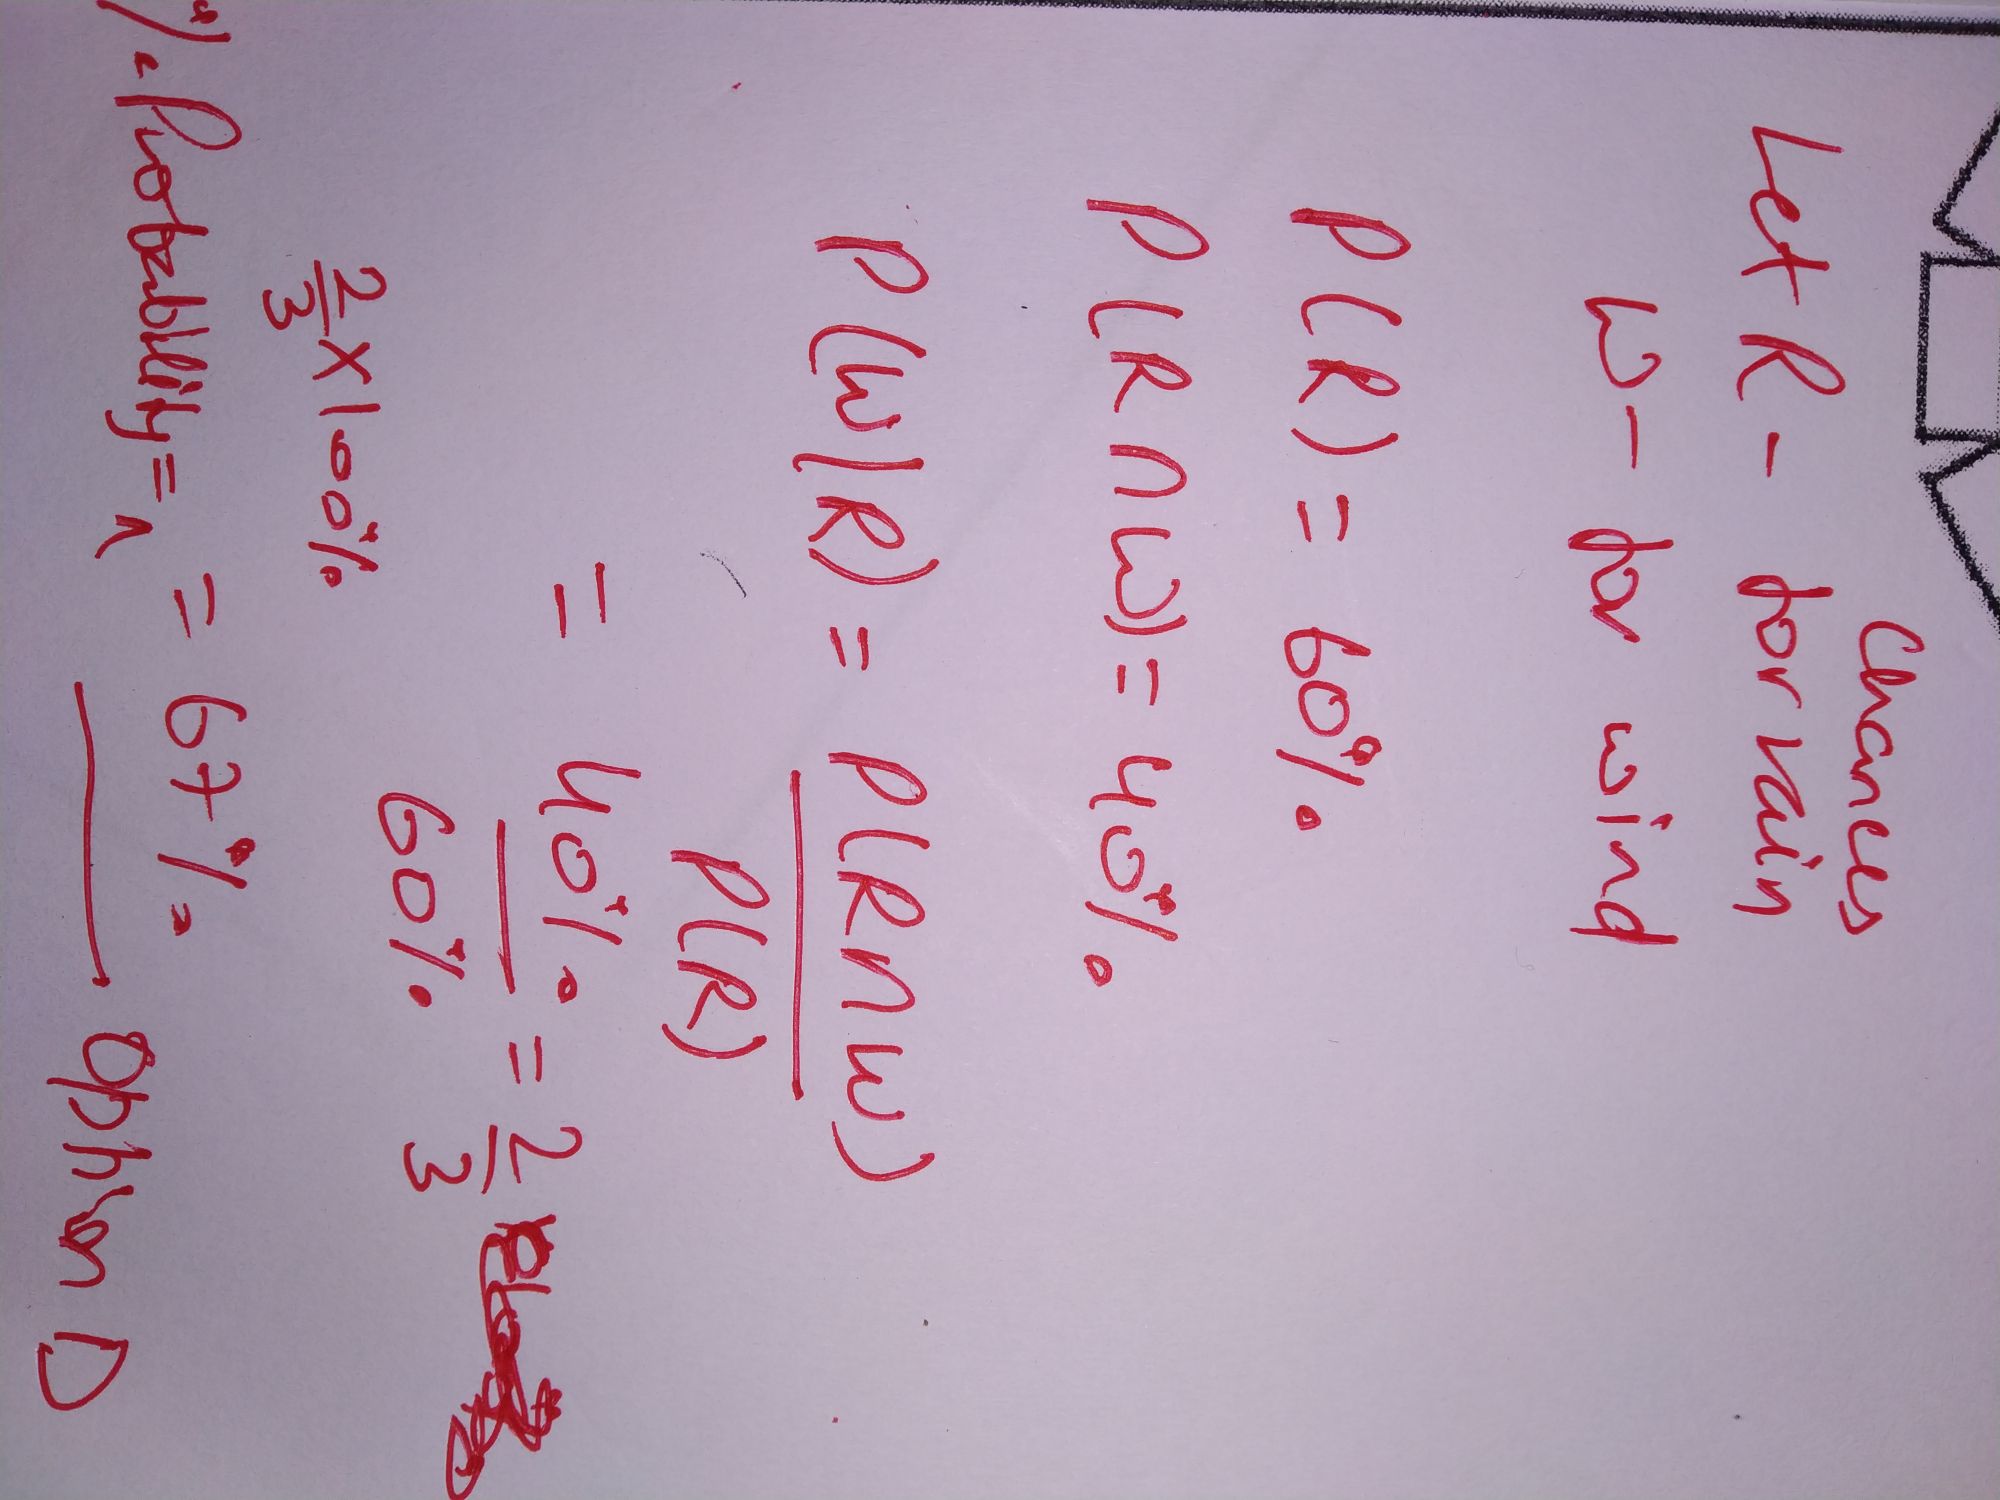 Chances
Let R - for rain
W - for wind
P(R) = 60%
P(R∩W) = 40%
P(W|R) = P(R∩W)
P(R)
= 40% = 2
60% 3
2/3 × 100%
%-Probability = = 67% Option D